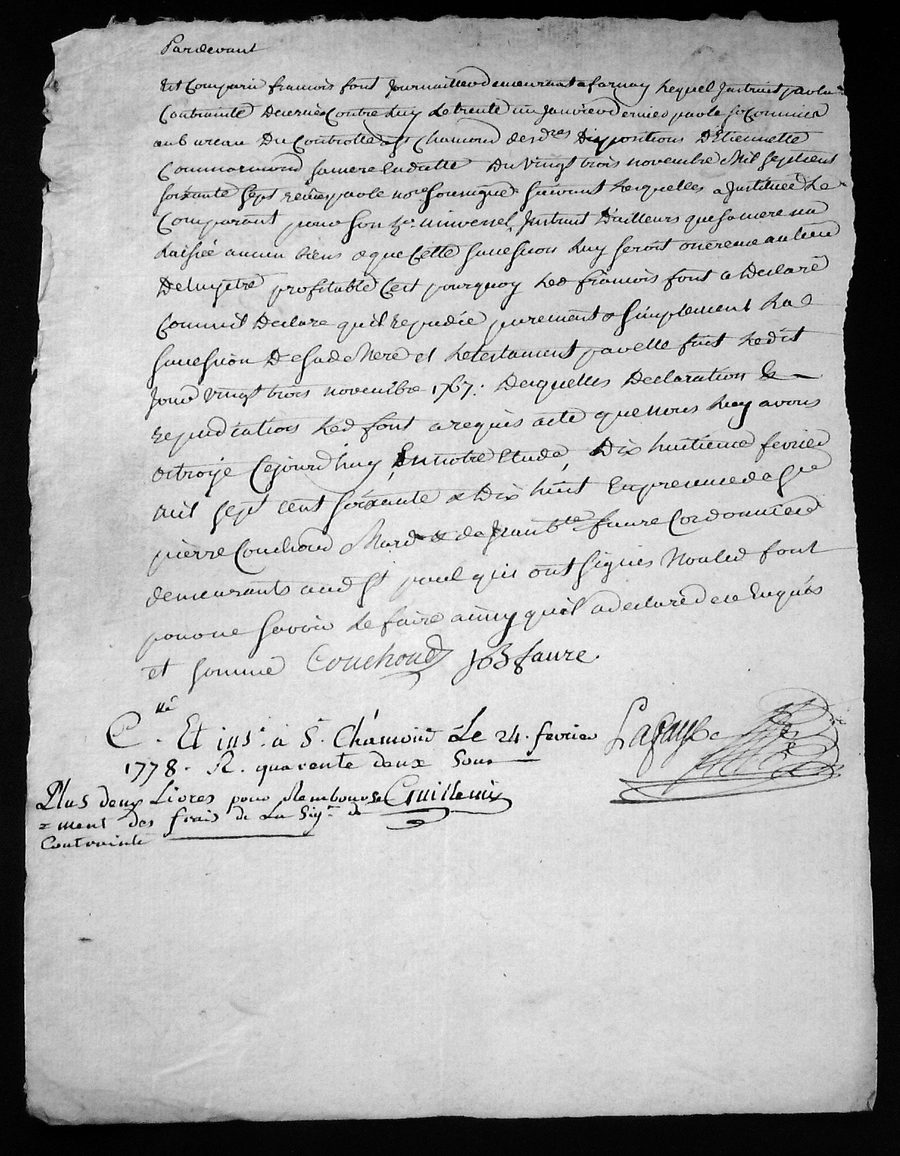 Pardevant
Est Comparu francois font Journaillier demeurant a farnay Lequel Instruit par la
Contrainte Decernée Contre Luy Le trente un Janvier dernier par le Sr Commis
au bureau Du Controlle de St Chamond des dres Dispositions D'Etiennette
Commarmond Sa mere En datte Du vingt trois novembre Mil Sept Cent
Soixante Sept reçües par le nore Soussigné Suivant Lesquelles a Institué Le
Comparant pour Son hr. universel, Instruit D'ailleurs que Sa mere na
Laissée aucun biens & que Cette Sucession Luy Seroit onereuse au lieu
De Luy etre profitable C'est pourquoy Led francois font a Declaré
Comme il Declare qu'il repudie purement & Simplement La
Sucession De Sade Mere et Le testament par elle fait Ledit
Jour vingt trois novembre 1767. Desquelles Declaration &
repudiation Led font a requis acte que nous Luy avons
octroyé Cejourd'huy En notre Etude Dix huitieme fevrier
mil Sept Cent Soixante & Dix huit En presence de
pierre Couchoud Mard & de Jean bte faure Cordonnier
demeurants aud St paul qui ont Signés Non led font
pour ne Savoir Le faire ainsy qu'il a declaré de ce Enquis
et Sommé Couchoud JB faure.
Cllé. Et ins. à St. Chamond Le 24. fevrier
1778. R. quarente deux Sous
Lafaye
Plus deux Livres pour Rembourse Guillemin
=ment des frais de La Sig.on de
Contrainte